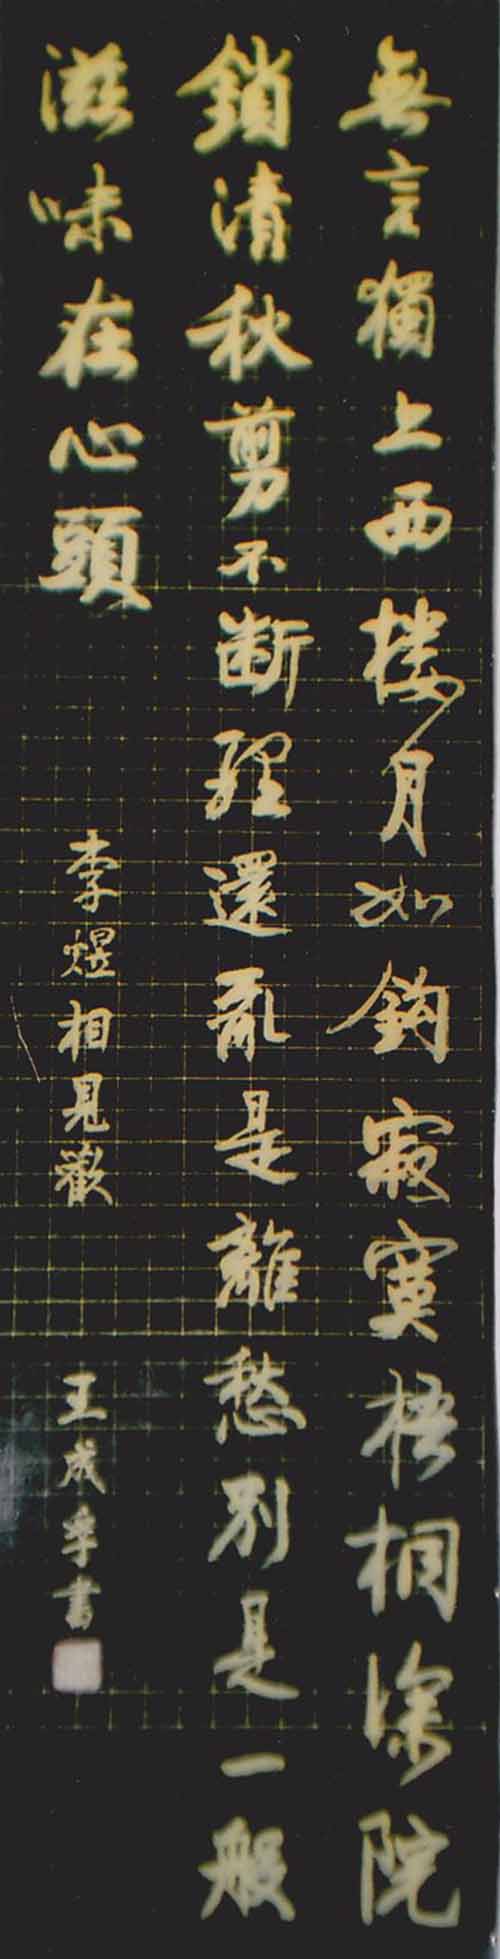 無言獨上西楼月如鈎寂寞梧桐深院
鎖清秋剪不断理還亂是離愁別是一般
滋味在心頭
李煜相見歡
王成孚書